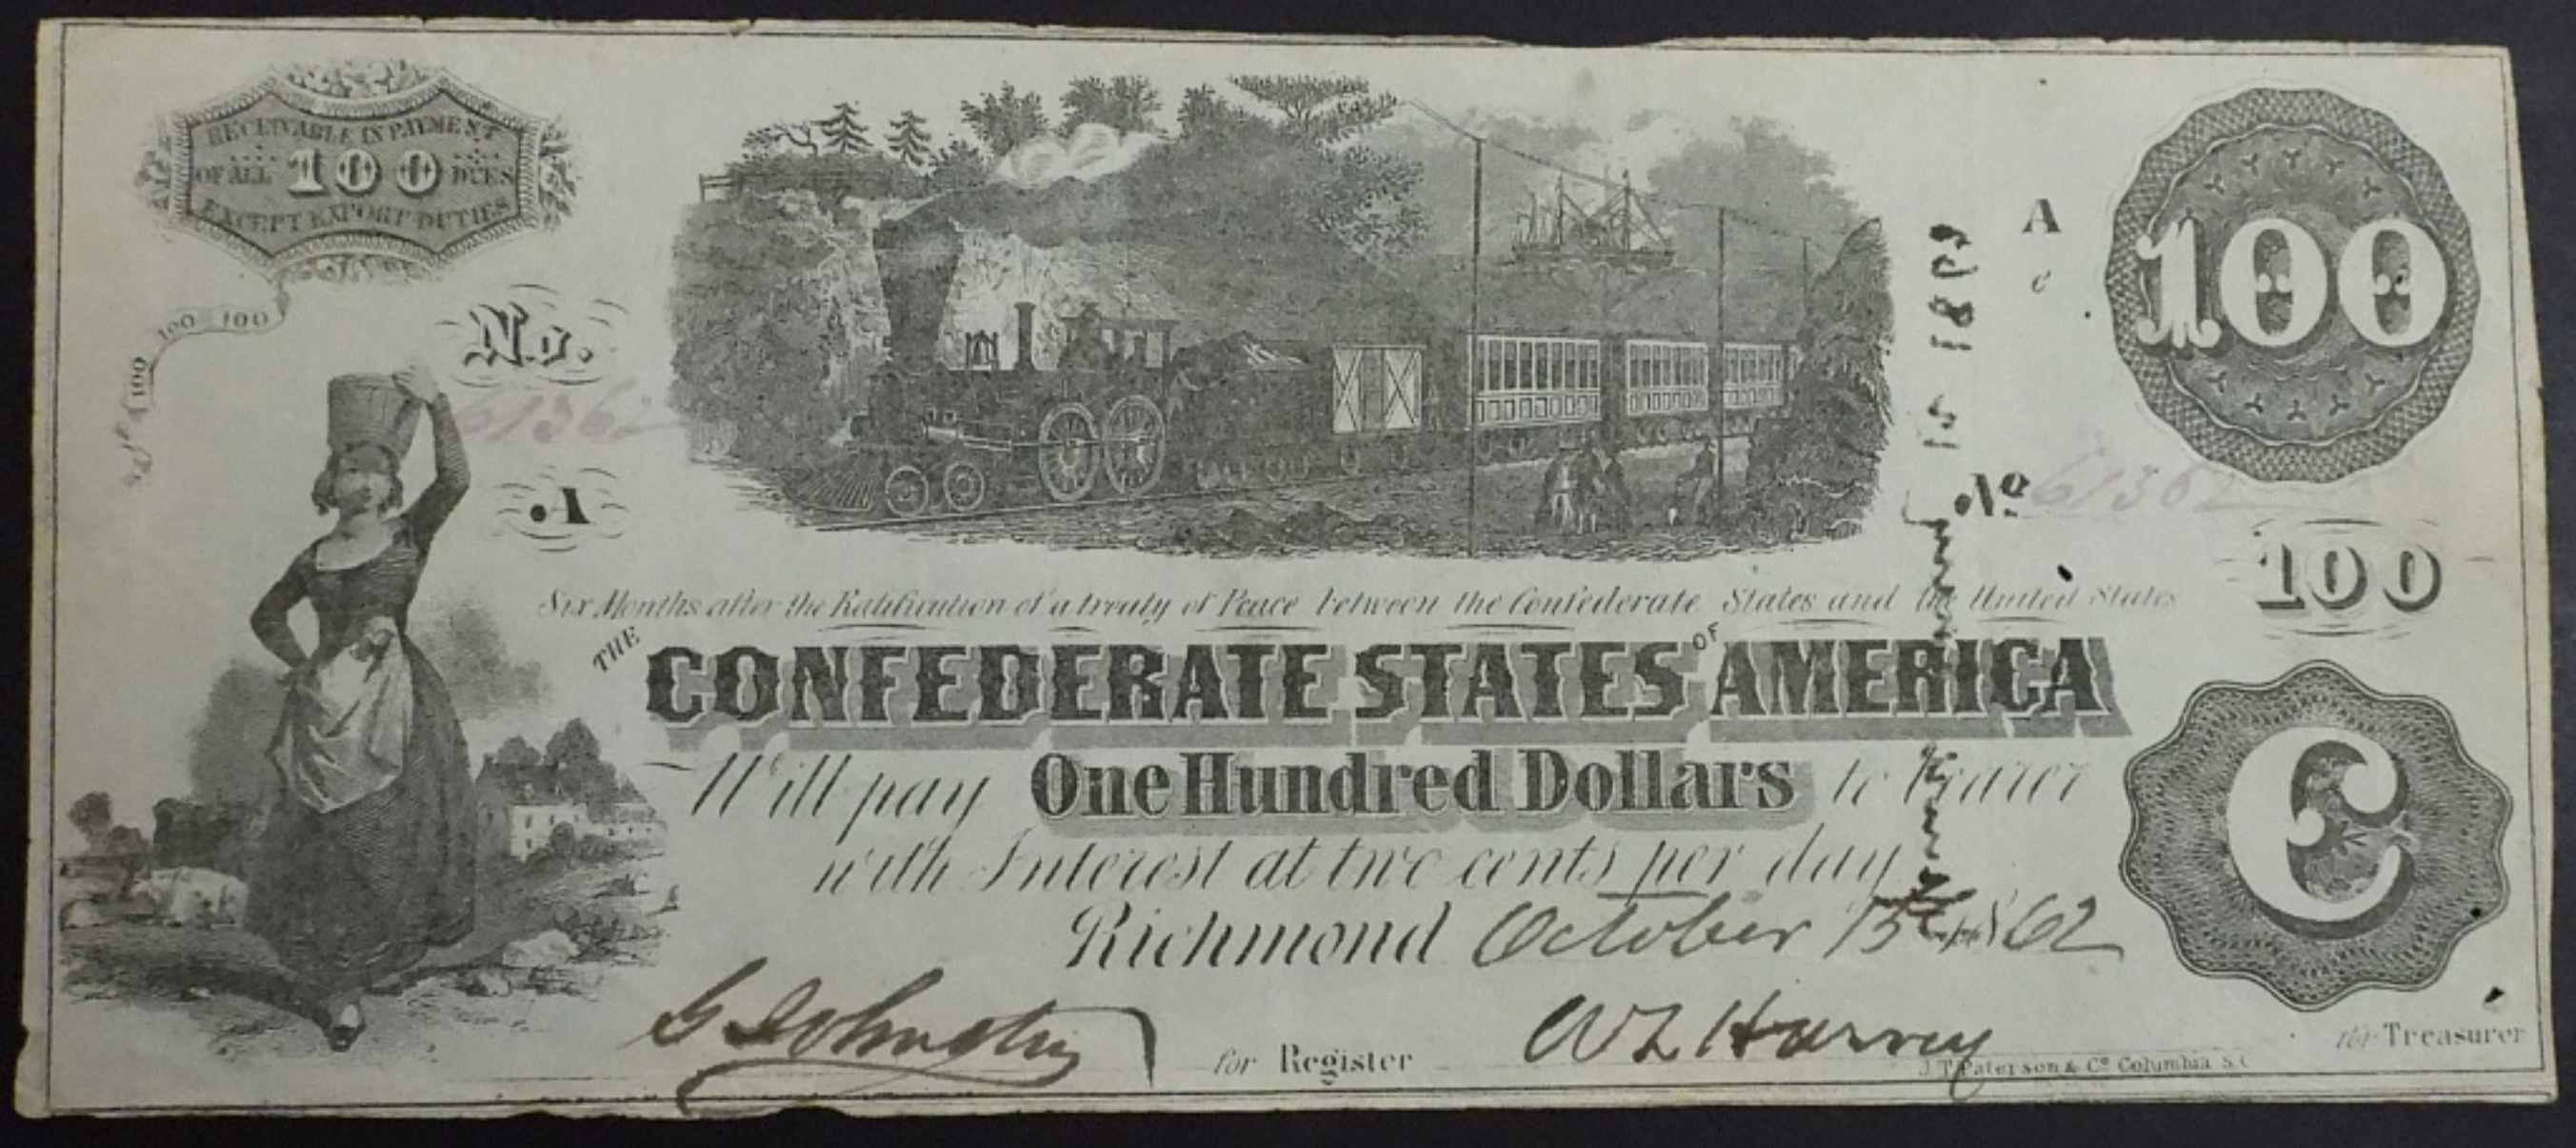 RECEIVABLE IN PAYMENT
OF ALL 100 DUES
EXCEPT EXPORT DUTIES
100 100 100
No.
61362
A
A
c
100
No 61362
100
Six Months after the Ratification of a treaty of Peace between the Confederate States and the United States
THE CONFEDERATE STATES OF AMERICA
Will pay One Hundred Dollars to Bearer
with Interest at two cents per day
Richmond October 15 1862
C
G Johnston for Register
W L Harvey for Treasurer
J. T. Paterson & Co Columbia S.C